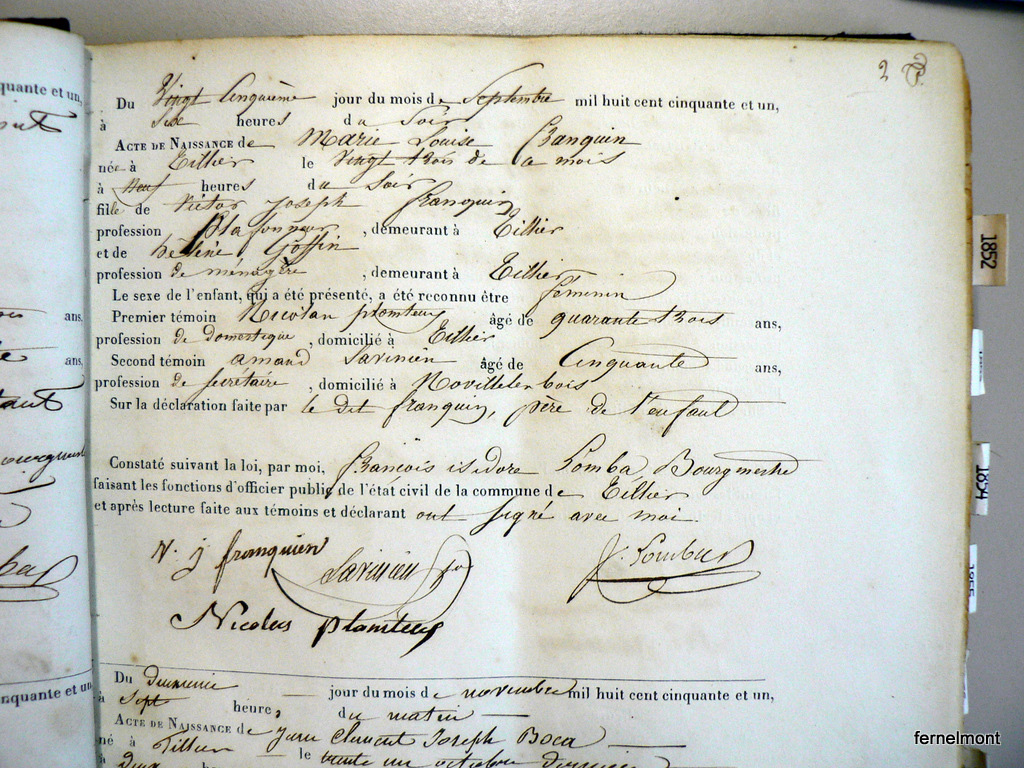 2
Du Vingt Cinquième jour du mois de Septembre mil huit cent cinquante et un,
à Six heures du Soir
ACTE DE NAISSANCE de Marie Louise Franquin
née à Tillier le Vingt trois de ce mois
à Neuf heures du Soir
fille de Victor Joseph franquin
profession plafonneur, demeurant à Tillier
et de hélène Goffin
profession de ménagère, demeurant à Tillier
Le sexe de l'enfant, qui a été présenté, a été reconnu être féminin
Premier témoin Nicolas plomteux âgé de quarante trois ans,
profession de domestique, domicilié à Tillier
Second témoin amand Savinien âgé de Cinquante ans,
profession de secrétaire, domicilié à Novillelesbois
Sur la déclaration faite par le dit franquin, père de l'enfant
Constaté suivant la loi, par moi, françois isidore Lomba Bourgmestre
faisant les fonctions d'officier public de l'état civil de la commune de Tillier
et après lecture faite aux témoins et déclarant ont signé avec moi
V. j franquien
Savinien
Lomba
Nicolas plomteux
Du deuxième jour du mois de novembre mil huit cent cinquante et un,
à Sept heures du matin
ACTE DE NAISSANCE de Clement Joseph Boca
né à Tillier le trente un octobre dernier
quante et un,
ans,
ans,
nquante et un,
1852
1854
1855
fernelmont